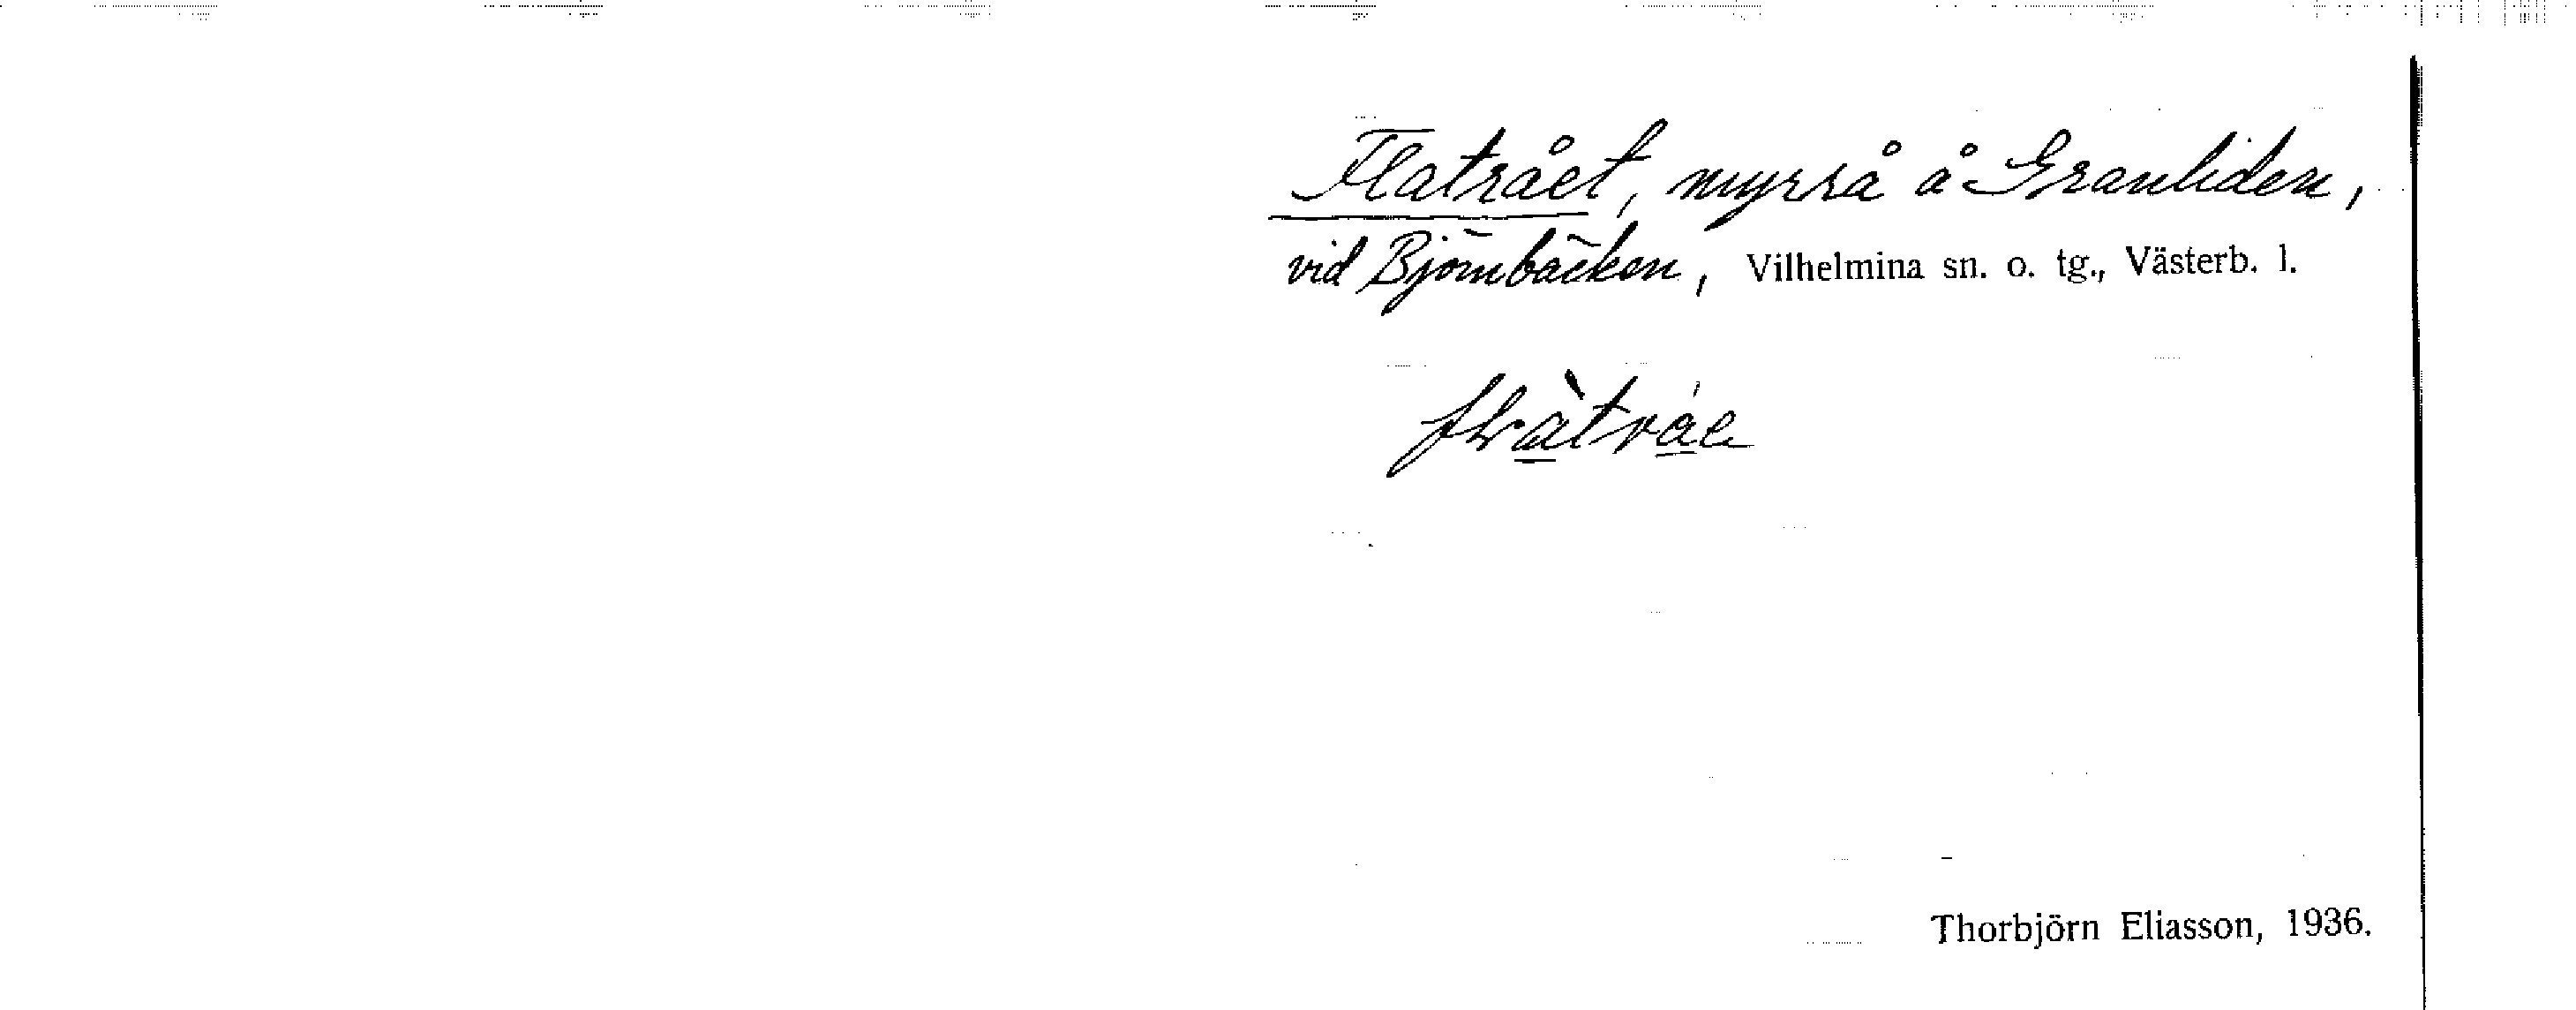 Flatrået, myrrå å Granliden,
vid Björnbäcken, Vilhelmina sn. o. tg., Västerb. l.
Thorbjörn Eliasson, 1936.